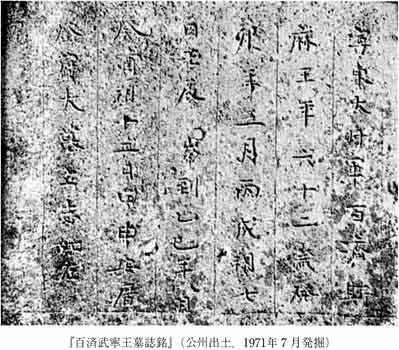 寧東大将軍百済斯
麻王年六十二歳癸
卯年五月丙戌朔七
日壬辰崩到乙巳年八月
癸酉朔十二日甲申安厝
登冠大墓立志如左
『百済武寧王墓誌銘』(公州出土, 1971年7月発掘)